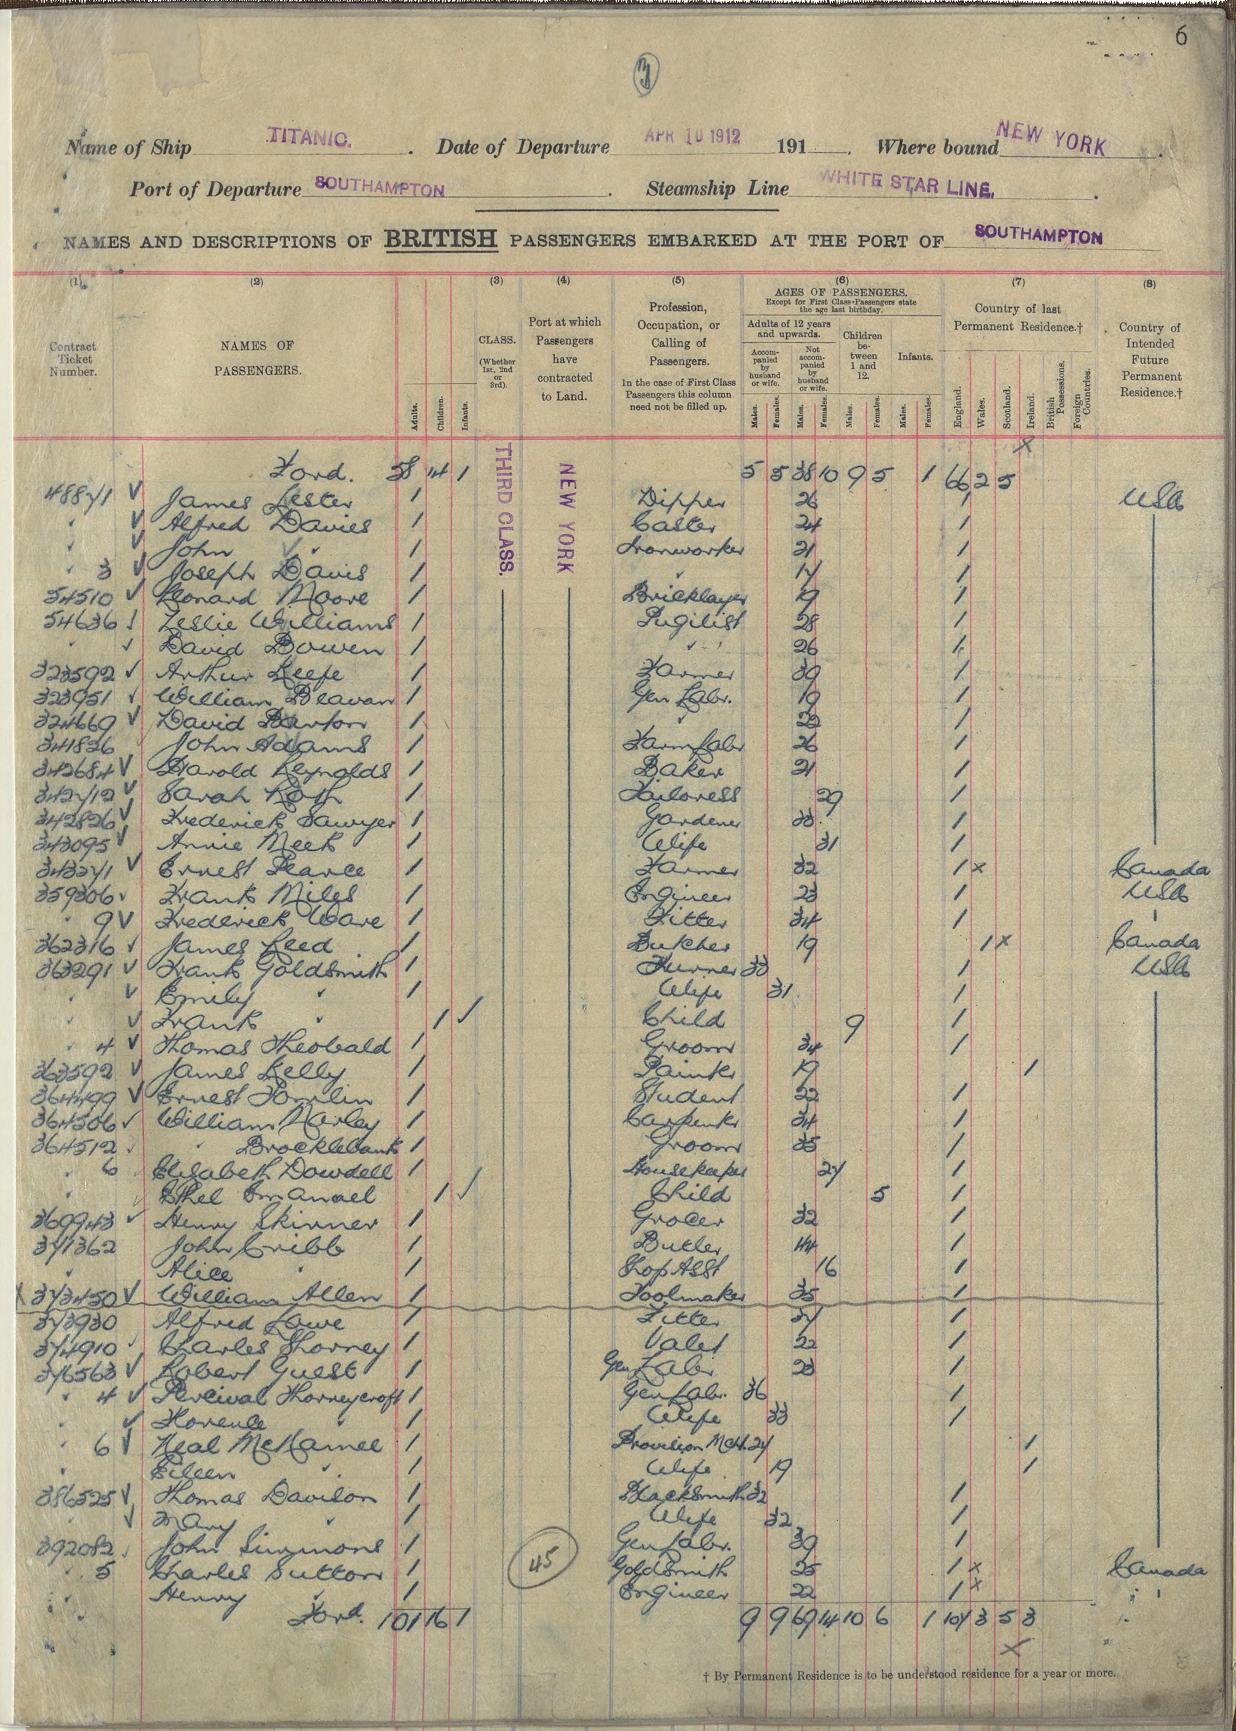 6
3
Name of Ship TITANIC. Date of Departure APR 10 1912 191 . Where bound NEW YORK .
Port of Departure SOUTHAMPTON . Steamship Line WHITE STAR LINE. .
NAMES AND DESCRIPTIONS OF BRITISH PASSENGERS EMBARKED AT THE PORT OF SOUTHAMPTON
(1) (2) (3) (4) (5) (6) (7) (8)
Contract Ticket Number.
NAMES OF PASSENGERS.
Adults. Children. Infants.
CLASS. (Whether 1st, 2nd or 3rd).
Port at which Passengers have contracted to Land.
Profession, Occupation, or Calling of Passengers. In the case of First Class Passengers this column need not be filled up.
AGES OF PASSENGERS. Except for First Class Passengers state the age last birthday.
Adults of 12 years and upwards. Children between 1 and 12. Infants.
Accompanied by husband or wife. Not accompanied by husband or wife.
Males. Females. Males. Females. Males. Females. Males. Females.
Country of last Permanent Residence.†
England. Wales. Scotland. Ireland. British Possessions. Foreign Countries.
Country of Intended Future Permanent Residence.†
THIRD CLASS.
NEW YORK
x
Ford. 58 14 1 5 5 38 10 9 5 1 66 2 5
48871 James Lester 1 Dipper 26 1 USA
" Alfred Davies 1 Caster 24 1
" John " 1 Ironworker 21 1
" 3 Joseph Davis 1 " 17 1
54510 Leonard Moore 1 Bricklayer 19 1
54636 Leslie Williams 1 Pugilist 28 1
" David Bowen 1 " 26 1
323592 Arthur Keefe 1 Farmer 39 1
323951 William Beavan 1 Gen Labr. 19 1
324669 David Barton 1 " 22 1
341826 John Adams 1 Farm Labr 26 1
342684 Harold Reynolds 1 Baker 21 1
342712 Sarah Roth 1 Tailoress 29 1
342826 Frederick Sawyer 1 Gardener 33 1
343095 Annie Meek 1 Wife 31 1
343271 Ernest Pearce 1 Farmer 32 1 x Canada
359306 Frank Miles 1 Engineer 23 1 USA
" 9 Frederick Ware 1 Fitter 34 1 "
362316 James Reed 1 Butcher 19 1 x Canada
363291 Frank Goldsmith 1 Turner 33 1 USA
" Emily " 1 Wife 31 1
" Frank " 1 Child 9 1
" 4 Thomas Theobald 1 Groom 34 1
363592 James Kelly 1 Painter 19 1
364499 Ernest Tomlin 1 Student 22 1
364506 William Marley 1 Carpenter 34 1
364512 " Brocklebank 1 Groom 35 1
" 6 Elizabeth Dowdell 1 Housekeeper 27 1
" Ethel Emanuel 1 Child 5 1
369943 Henry Skinner 1 Grocer 32 1
371362 John Cribb 1 Butler 44 1
" Alice " 1 Shop Asst 16 1
x 373450 William Allen 1 Toolmaker 35 1
373930 Alfred Lowe 1 Fitter 37 1
374910 Charles Thorney 1 Valet 22 1
376563 Robert Guest 1 Gen Labr. 23 1
" 4 Percival Thorneycroft 1 Gen Labr. 36 1
" Florence " 1 Wife 33 1
" 6 Neal McNamee 1 Provision Mcht. 27 1
" Eileen " 1 Wife 19 1
386525 Thomas Davison 1 Blacksmith 32 1
" Mary " 1 Wife 32 1
392082 John Simmons 1 Gen Labr. 39 1
" 5 Charles Sutton 1 Goldsmith 25 1 x Canada
" Henry " 1 Engineer 22 1 x "
45
Ford. 101 16 1 9 9 69 14 10 6 1 107 3 5 3
x
† By Permanent Residence is to be understood residence for a year or more.